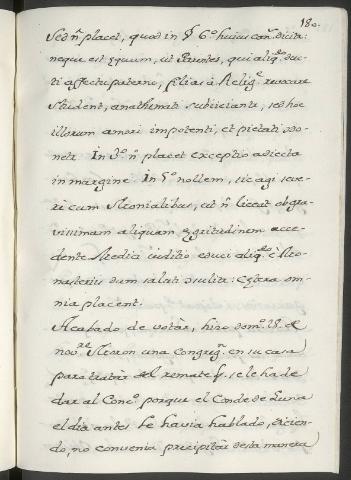 180.
Sed ñ placet, quod in § 6º huius can. dicitа:
neque est equum, ut Parentes, qui aliqᵈᵒ duc-
ti affectu paterno, filias à Religᵉ revocare
student, anathemati subiiciantr, sed hoc
illorum amori impotenti, et pietati do-
netr. In 3º ñ placet exceptio adiecta
in margine. In 5º nollem, sic agi seve-
re cum Monialibus, ut ñ liceat ob gra-
vissimam aliquam egritudinem acce-
dente Medici iuditio educi aliqᵈᵒ è Mo-
nasteriis dum saluti Cetera om-
nia placent.
Acabado de votàr, hizo domº 28. de
novʳᵉ Moron una Congregⁿ en su casa
para tratàr del remate q̃ se le ha de
dar al Concº porque el Conde de Luna
el dia antes le havia hablado, dicien-
do, no convenia precipitàr desta manera